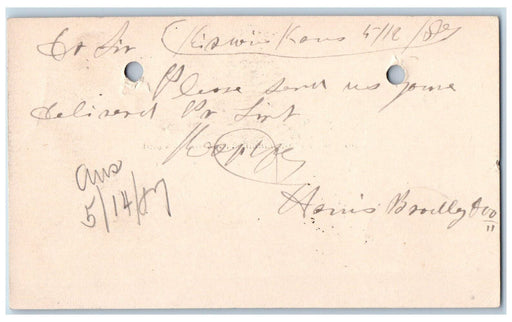 Dr Sir Kirwin Kans 5/12/87
Please send us your
delivered Pr List
Respy
Ans
5/14/87
Harris Bradley & Co